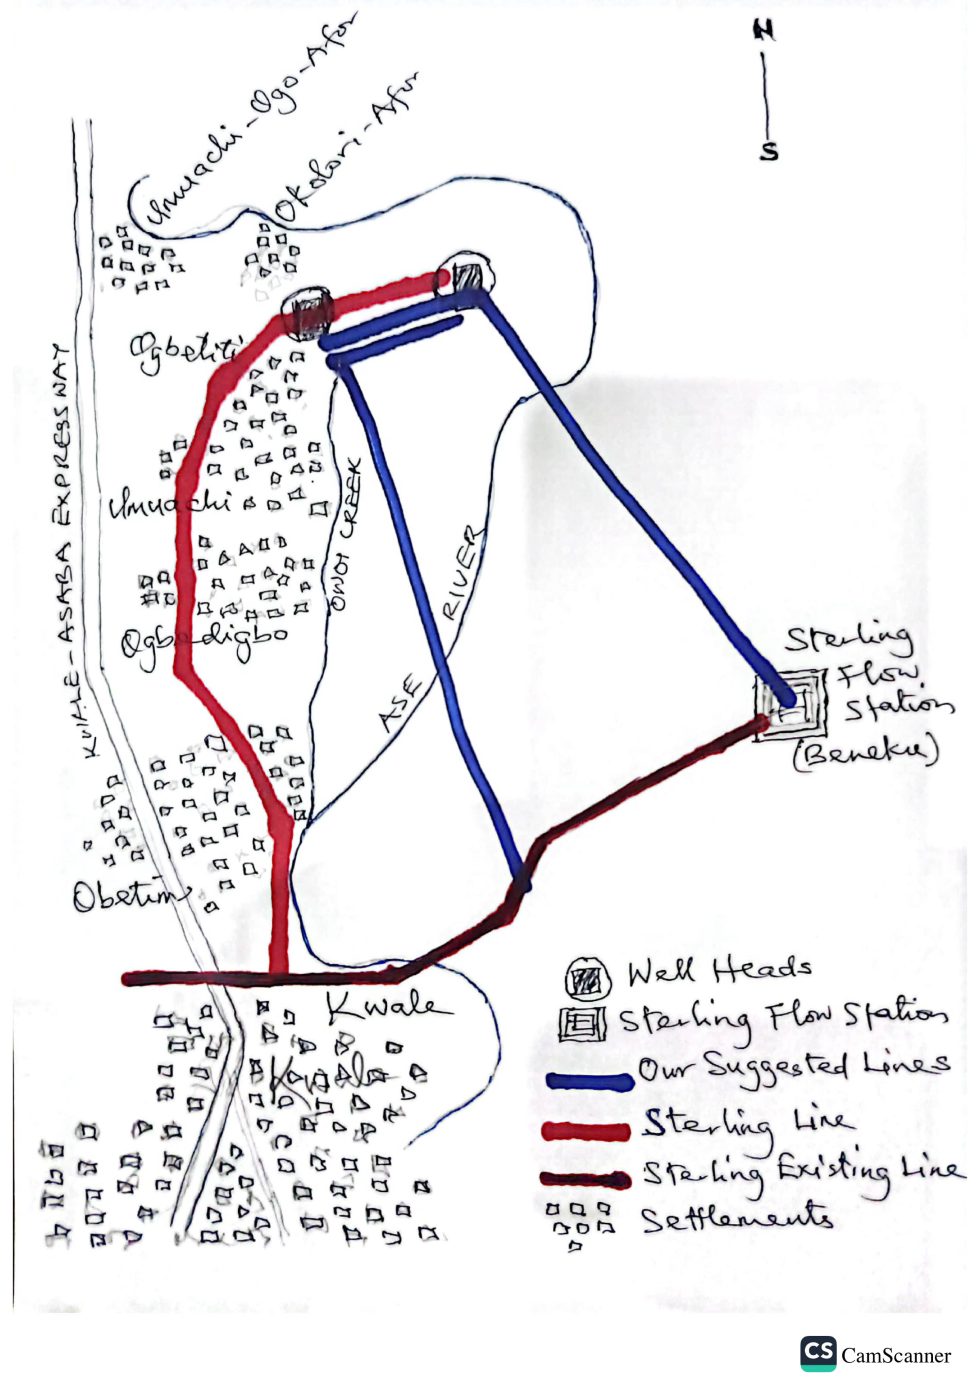 N
S
Umuachi-Ogo-Afor
Okolori-Afor
Ogbetiti
KWALE-ASABA EXPRESSWAY
Umuachi
OWOI CREEK
ASE RIVER
Ogbedigbo
Sterling
Flow
Station
(Beneku)
Obetim
Kwale
Well Heads
Sterling Flow Station
Our Suggested Lines
Sterling Line
Sterling Existing Line
Settlements
CS CamScanner